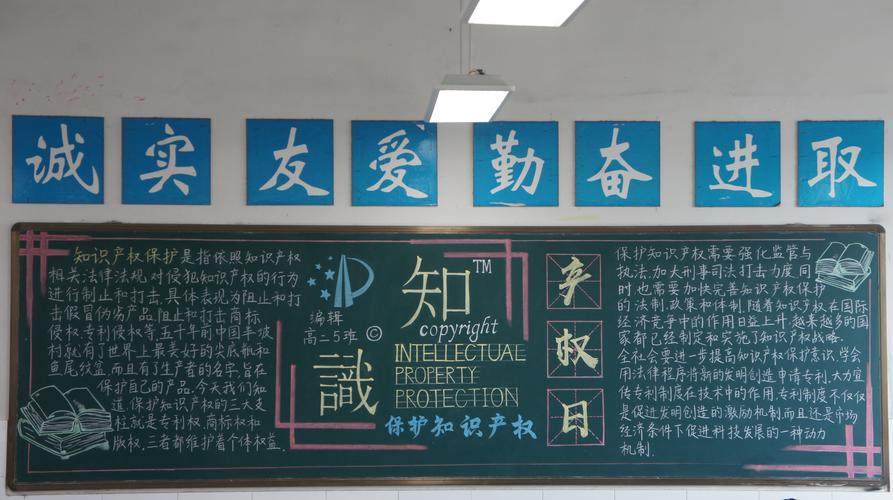 诚实 友爱 勤奋 进取
知识产权保护是指依照知识产权
相关法律法规,对侵犯知识产权的行为
进行制止和打击,具体表现为阻止和打
击假冒伪劣产品,阻止和打击商标
侵权,专利侵权等,五千年前中国半坡
村就有了世界上最美好的尖底瓶和
鱼尾纹盆而且有了生产者的名字,旨在
保护自己的产品.今天我们知
道,保护知识产权的三大支
柱就是专利权,商标权和
版权,三者都维护着个体权益.
编辑
高二5班
©
知
TM
copyright
識
INTELLECTUAL
PROPERTY
PROTECTION
保护知识产权
产
权
日
保护知识产权需要强化监管与
执法,加大刑事司法打击力度,同
时也需要加快完善知识产权保护
的法制,政策和体制,随着知识产权在国际
经济竞争中的作用日益上升,越来越多的国
家都已经制定和实施了知识产权战略.
全社会要进一步提高知识产权保护意识,学会
用法律程序将新的发明创造申请专利,大力宣
传专利制度在技术中的作用,专利制度不仅仅
是促进发明创造的激励机制而且还是市场
经济条件下促进科技发展的一种动力
机制.